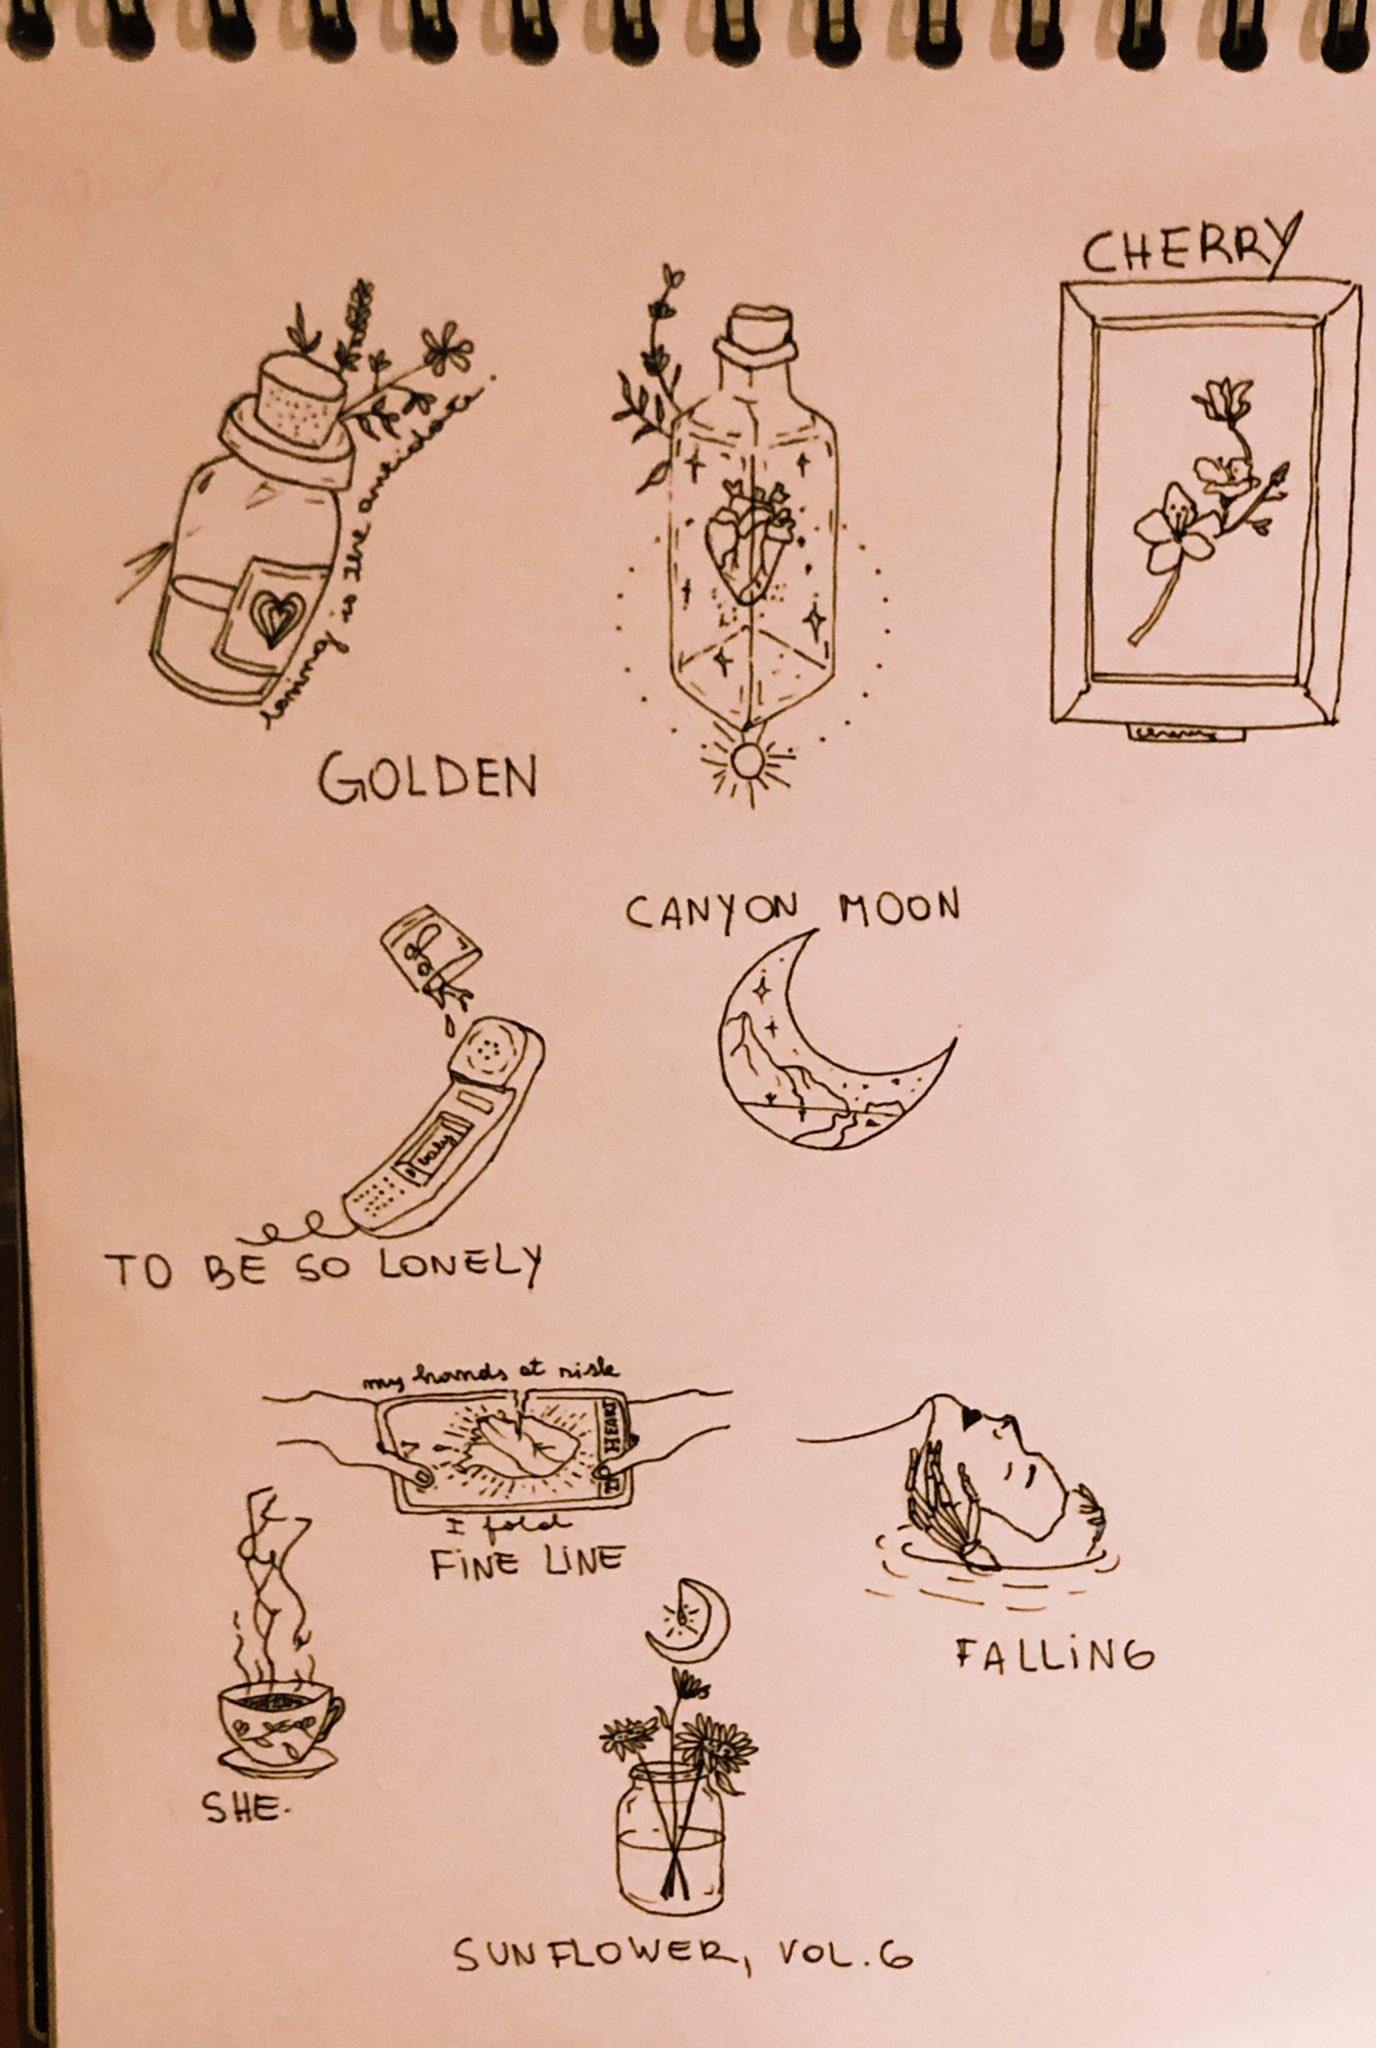 CHERRY
loving is the antidote.
GOLDEN
CANYON MOON
TO BE SO LONELY
my hands at risk
THE HEART
I fold
FINE LINE
FALLING
SHE.
SUNFLOWER, VOL. 6